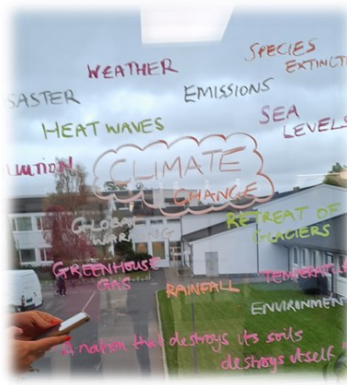 SPECIES
EXTINCT
WEATHER
SASTER
EMISSIONS
SEA
LEVELS
HEAT WAVES
CLIMATE
CHANGE
GLOBAL
WARMING
RETREAT OF
GLACIERS
GREENHOUSE
GAS
RAINFALL
ENVIRONMEN
A nation that destroys its soils
destroys itself"